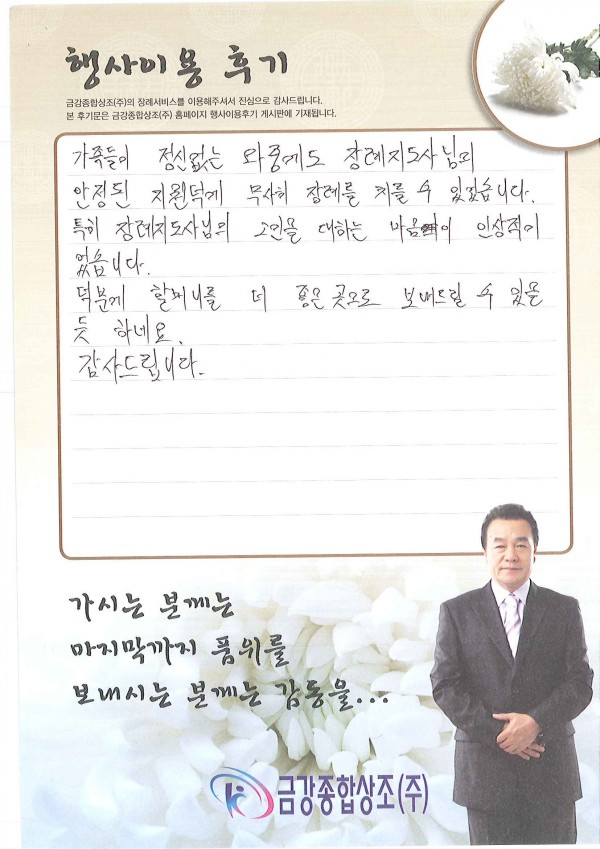 행사이용 후기
금강종합상조(주)의 장례서비스를 이용해주셔서 진심으로 감사드립니다.
본 후기문은 금강종합상조(주) 홈페이지 행사이용후기 게시판에 기재됩니다.
가족들이 정신없는 와중에도 장례지도사님의
안정된 지원덕게 무사히 장례를 치를 수 있었습니다.
특히 장례지도사님의 고인을 대하는 마음이 인상적이
었습니다.
덕분게 할머니를 더 좋은 곳으로 보내드릴 수 있을
듯 하네요.
감사드립니다.
가시는 분께는
마지막까지 품위를
보내시는 분께는 감동을...
금강종합상조(주)